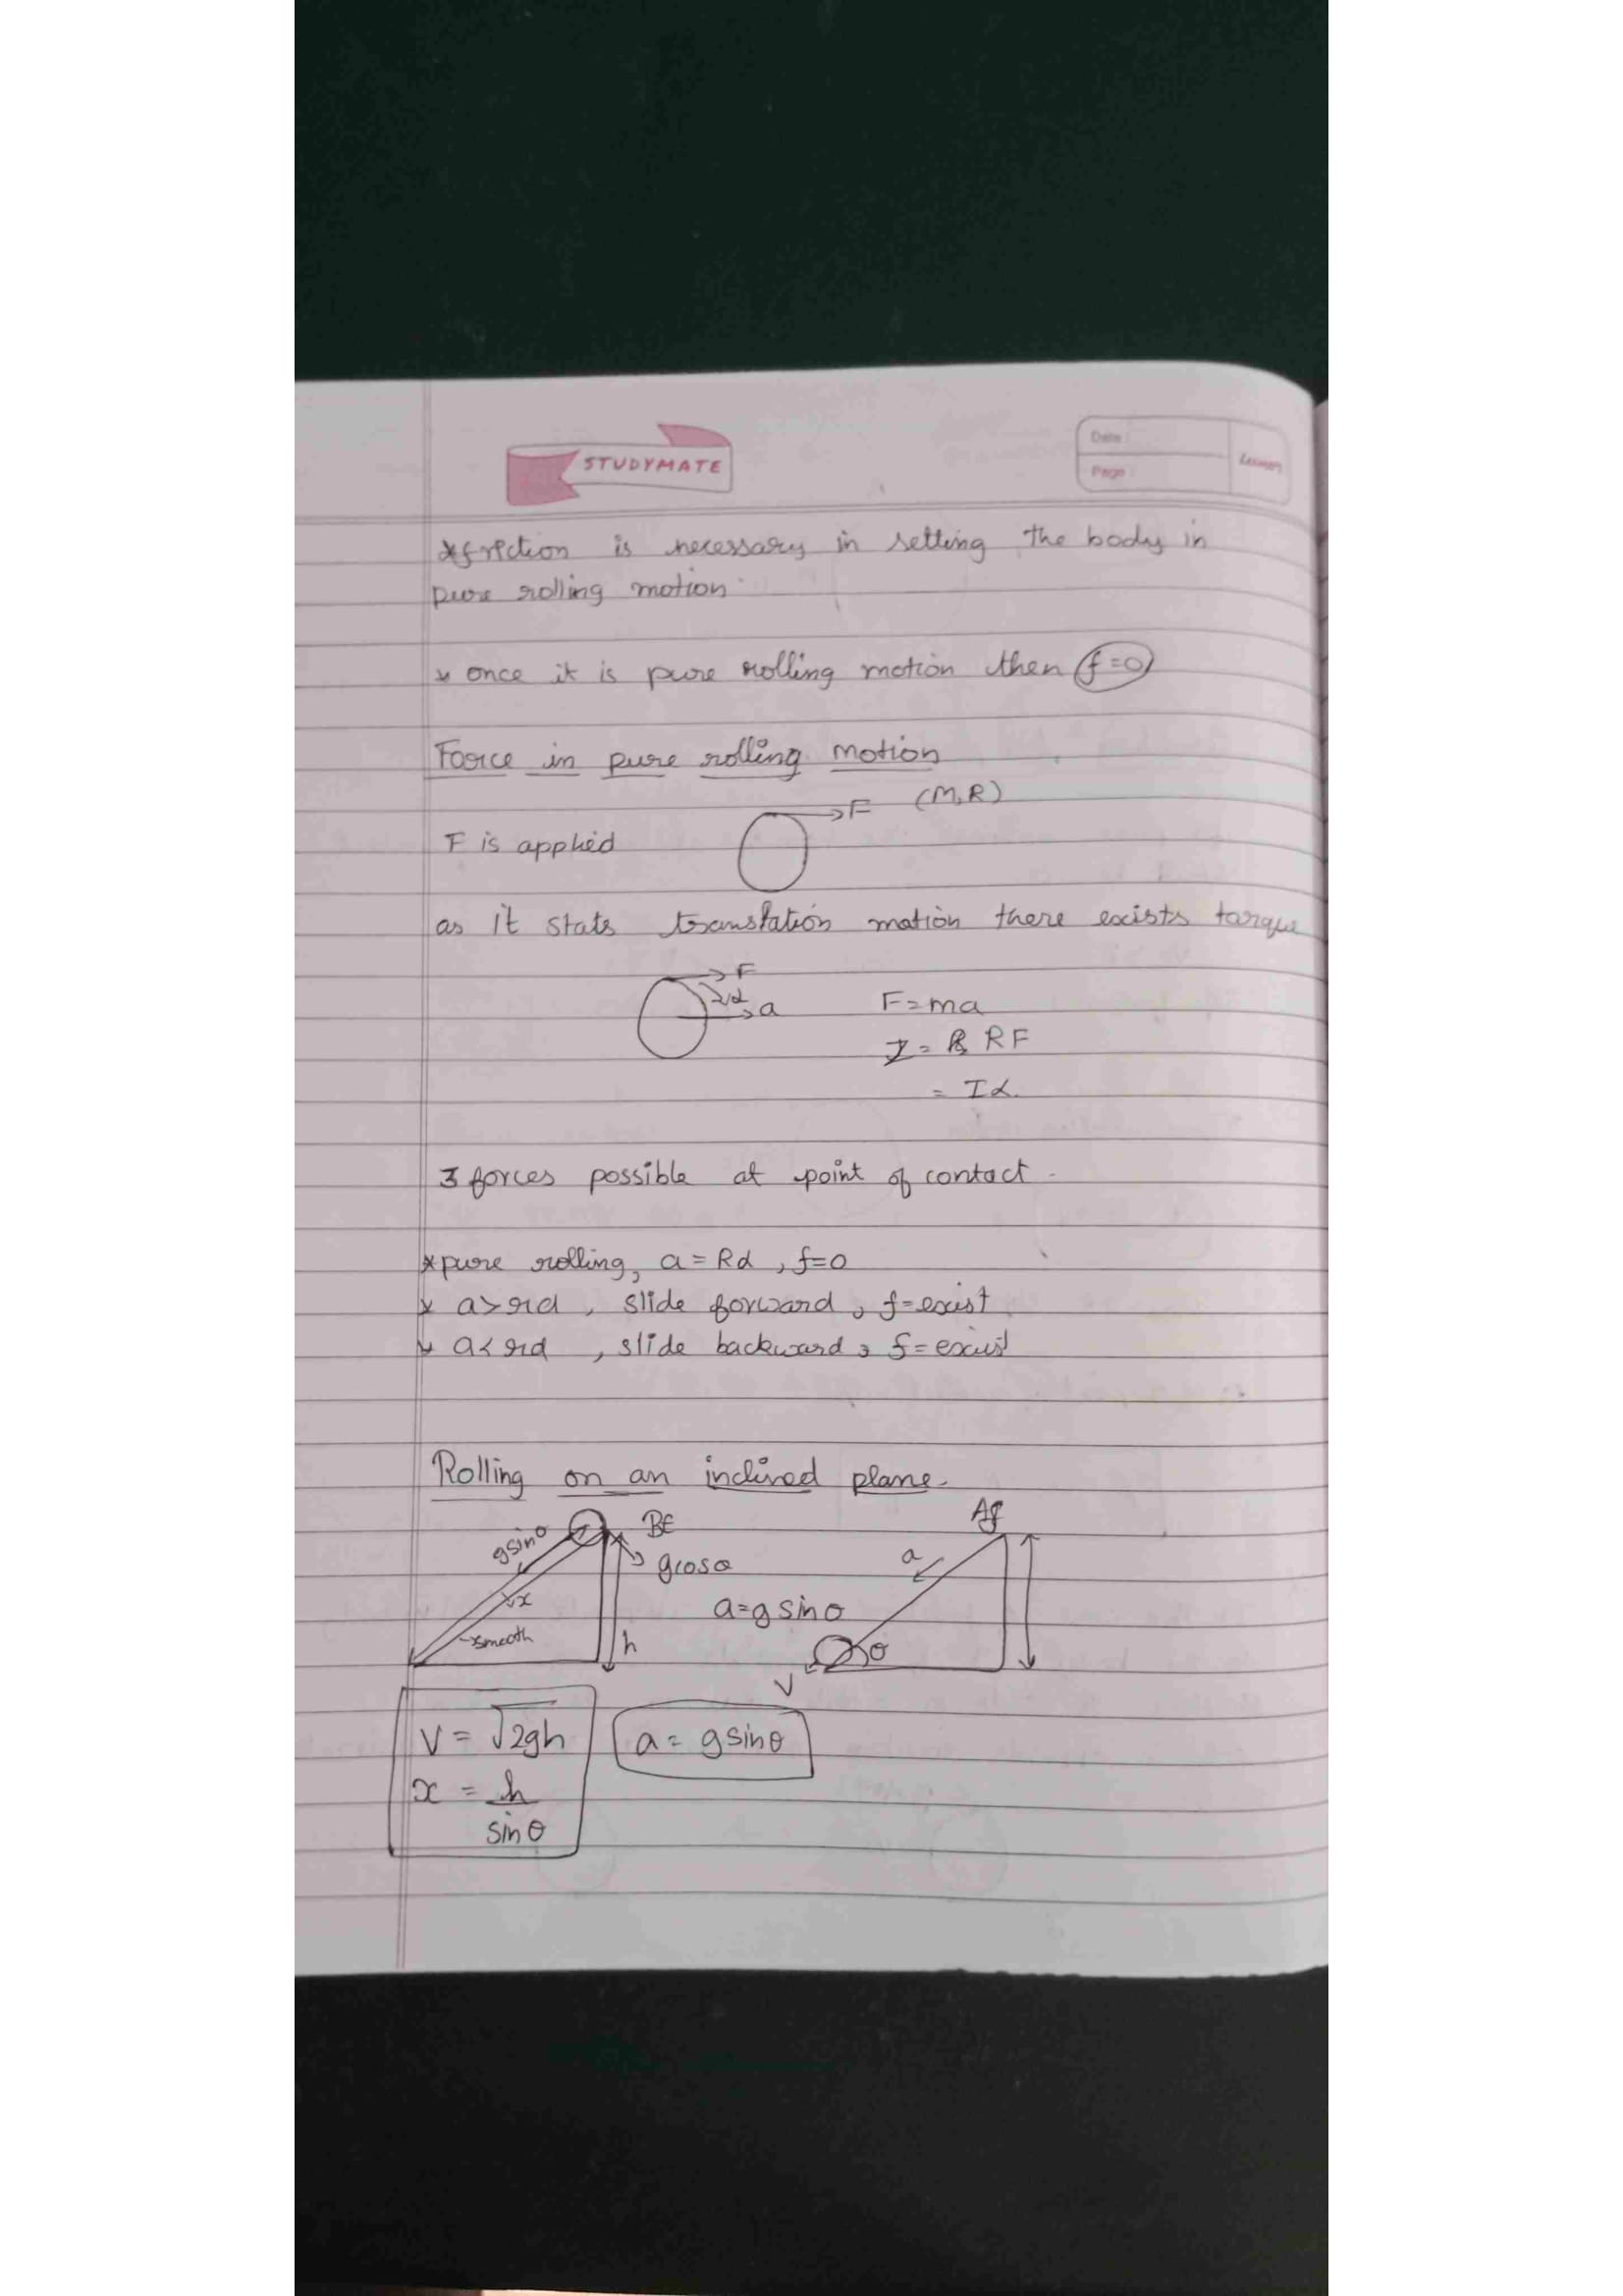 STUDYMATE
Date :
Page :
*friction is necessary in setting the body in
pure rolling motion.
* once it is pure rolling motion then f=0
Force in pure rolling motion
F (M,R)
F is applied
as it stats translation motion there exists torque
F
α
a
F=ma
τ = RF
= Iα.
3 forces possible at point of contact.
*pure rolling, a = Rα, f=0
* a>rα, slide forward, f=exist
* a<rα, slide backward, f=exist
Rolling on an inclined plane.
gsinθ
BE
gcosθ
x
smooth
h
Af
a
a=gsinθ
θ
V
V = √2gh
a = gsinθ
x = h
sinθ